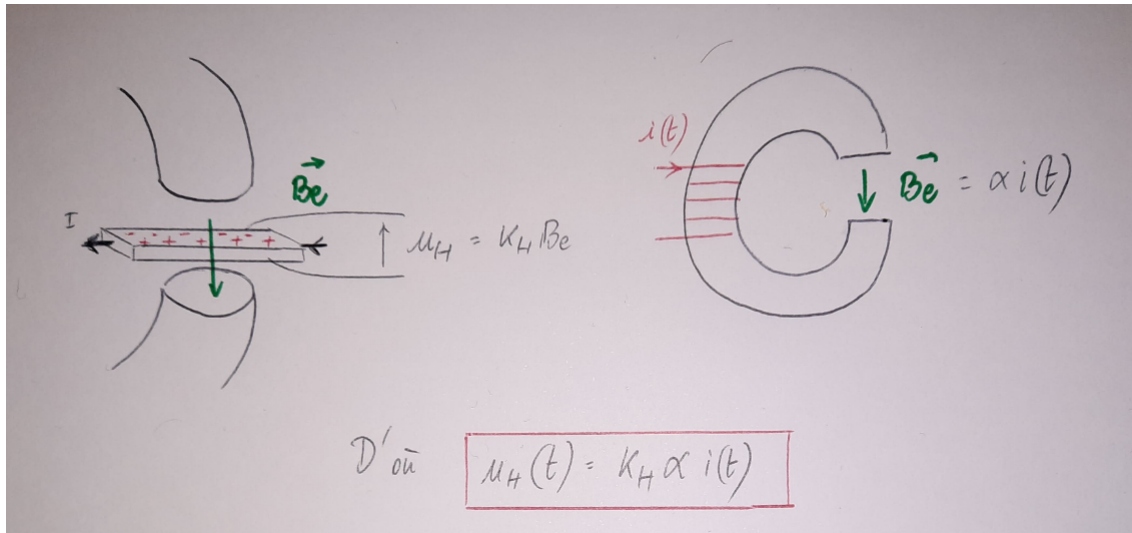 I
B⃗e
u_H = K_H Be
- - - - - -
+ + + + +
i(t)
B⃗e = α i(t)
D'où
u_H(t) = K_H α i(t)